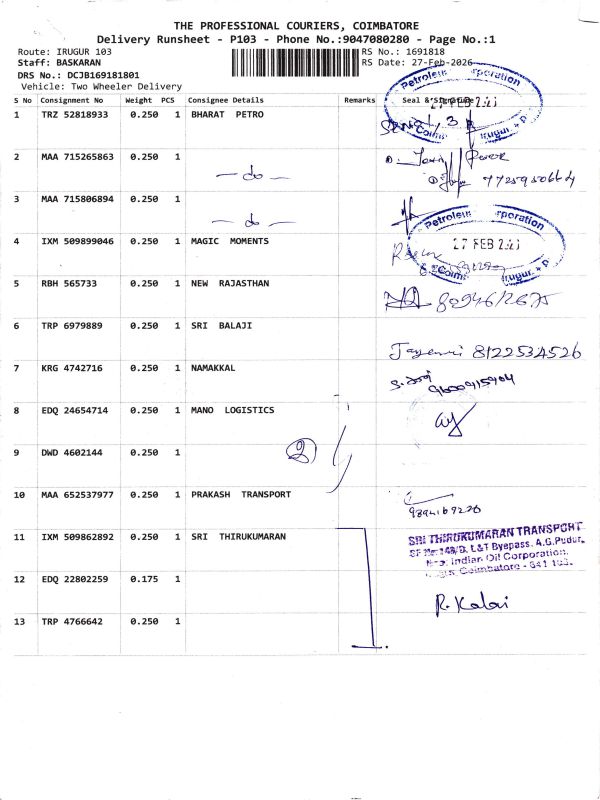 THE PROFESSIONAL COURIERS, COIMBATORE
Delivery Runsheet - P103 - Phone No.:9047080280 - Page No.:1
Route: IRUGUR 103 RS No.: 1691818
Staff: BASKARAN RS Date: 27-Feb-2026
DRS No.: DCJB169181801
Vehicle: Two Wheeler Delivery
S No Consignment No Weight PCS Consignee Details Remarks Seal & Signature
1 TRZ 52818933 0.250 1 BHARAT PETRO
2 MAA 715265863 0.250 1 — do —
7725950664
3 MAA 715806894 0.250 1 — do —
Petroleum Corporation
27 FEB
4 IXM 509899046 0.250 1 MAGIC MOMENTS
5 RBH 565733 0.250 1 NEW RAJASTHAN
6 TRP 6979889 0.250 1 SRI BALAJI Jayenvi 8122534526
7 KRG 4742716 0.250 1 NAMAKKAL
8 EDQ 24654714 0.250 1 MANO LOGISTICS
9 DWD 4602144 0.250 1
10 MAA 652537977 0.250 1 PRAKASH TRANSPORT
11 IXM 509862892 0.250 1 SRI THIRUKUMARAN SRI THIRUKUMARAN TRANSPORT
SF No:148/B, L&T Byepass, A.G.Pudur,
Indian Oil Corporation,
Coimbatore - 641
12 EDQ 22802259 0.175 1 R. Kalai
13 TRP 4766642 0.250 1